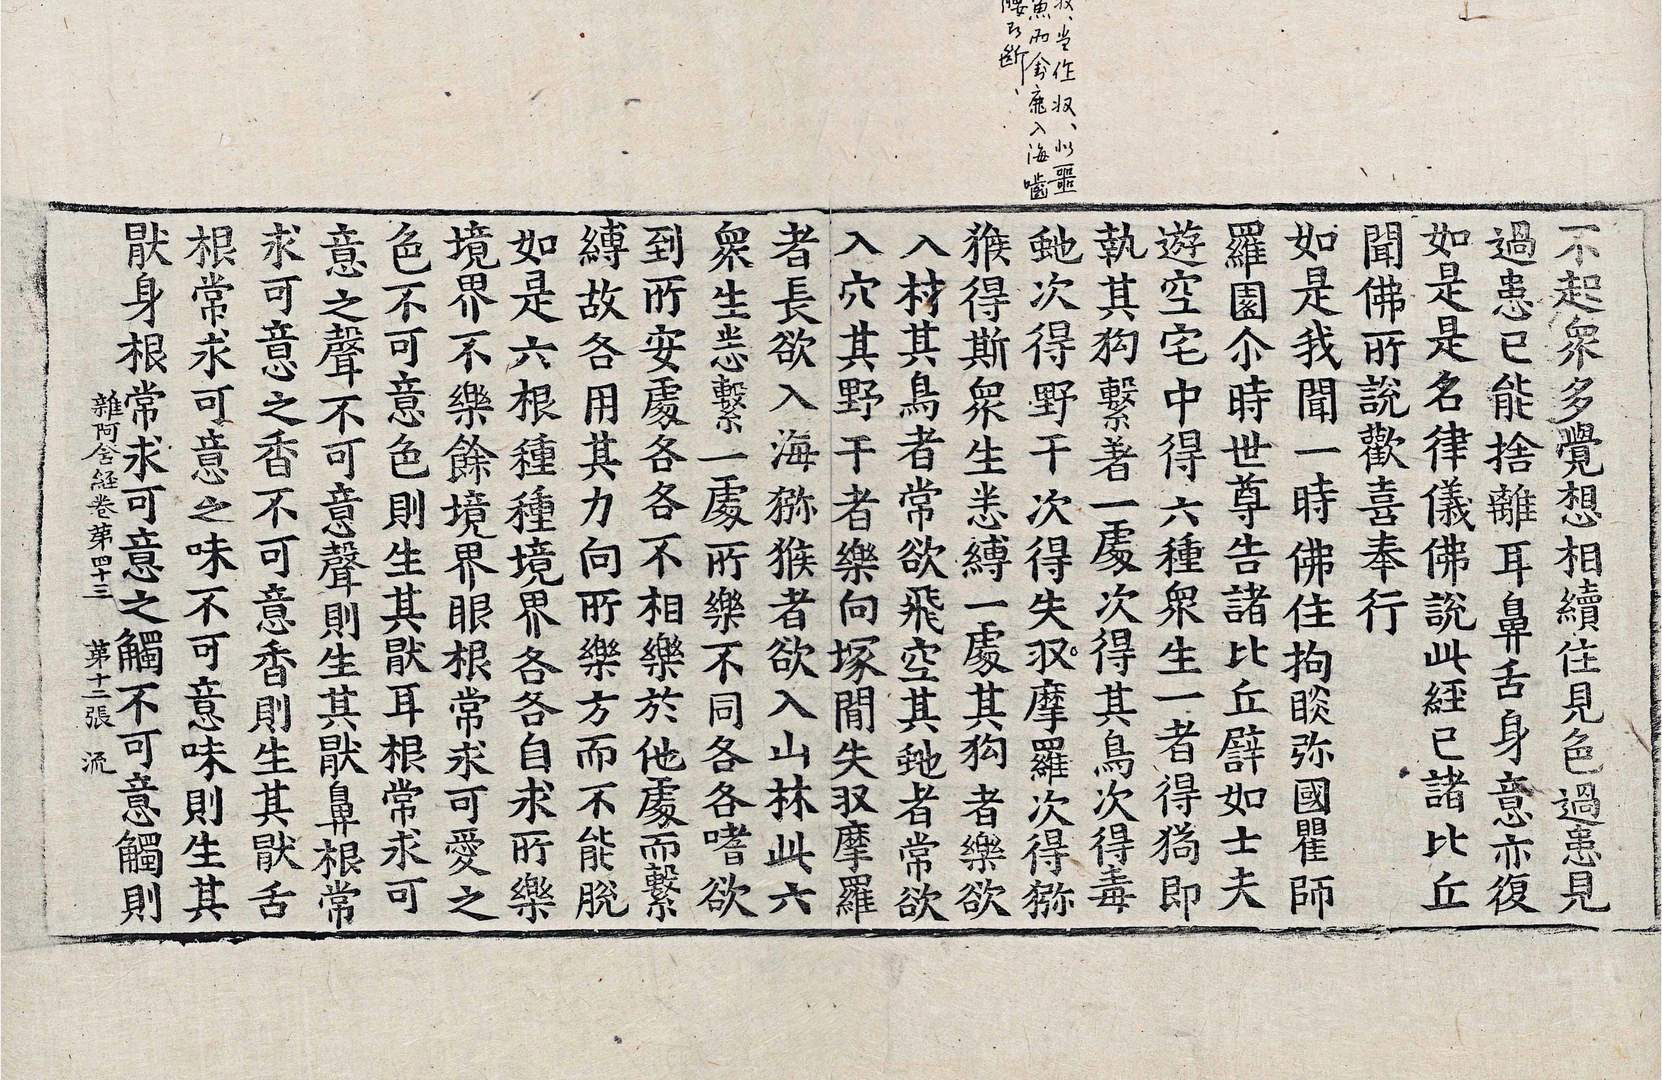 収、当作収、似噩
魚而食鹿入海噛
腰乃斷、
不起衆多覺想相續住見色過患見
過患已能捨離耳鼻舌身意亦復
如是是名律儀佛說此經已諸比丘
聞佛所說歡喜奉行
如是我聞一時佛住拘睒弥國瞿師
羅園尒時世尊告諸比丘譬如士夫
遊空宅中得六種衆生一者得猗即
執其狗繫著一處次得其鳥次得毒
虵次得野干次得失収摩羅次得獼
猴得斯衆生悉縛一處其狗者樂欲
入村其鳥者常欲飛空其虵者常欲
入穴其野干者樂向塚閒失収摩羅
者長欲入海獼猴者欲入山林此六
衆生悉繫一處所樂不同各各嗜欲
到所安處各各不相樂於他處而繫
縛故各用其力向所樂方而不能脫
如是六根種種境界各各自求所樂
境界不樂餘境界眼根常求可愛之
色不可意色則生其猒耳根常求可
意之聲不可意聲則生其猒鼻根常
求可意之香不可意香則生其猒舌
根常求可意之味不可意味則生其
猒身根常求可意之觸不可意觸則
雜阿含経卷第四十三 第十二張 流